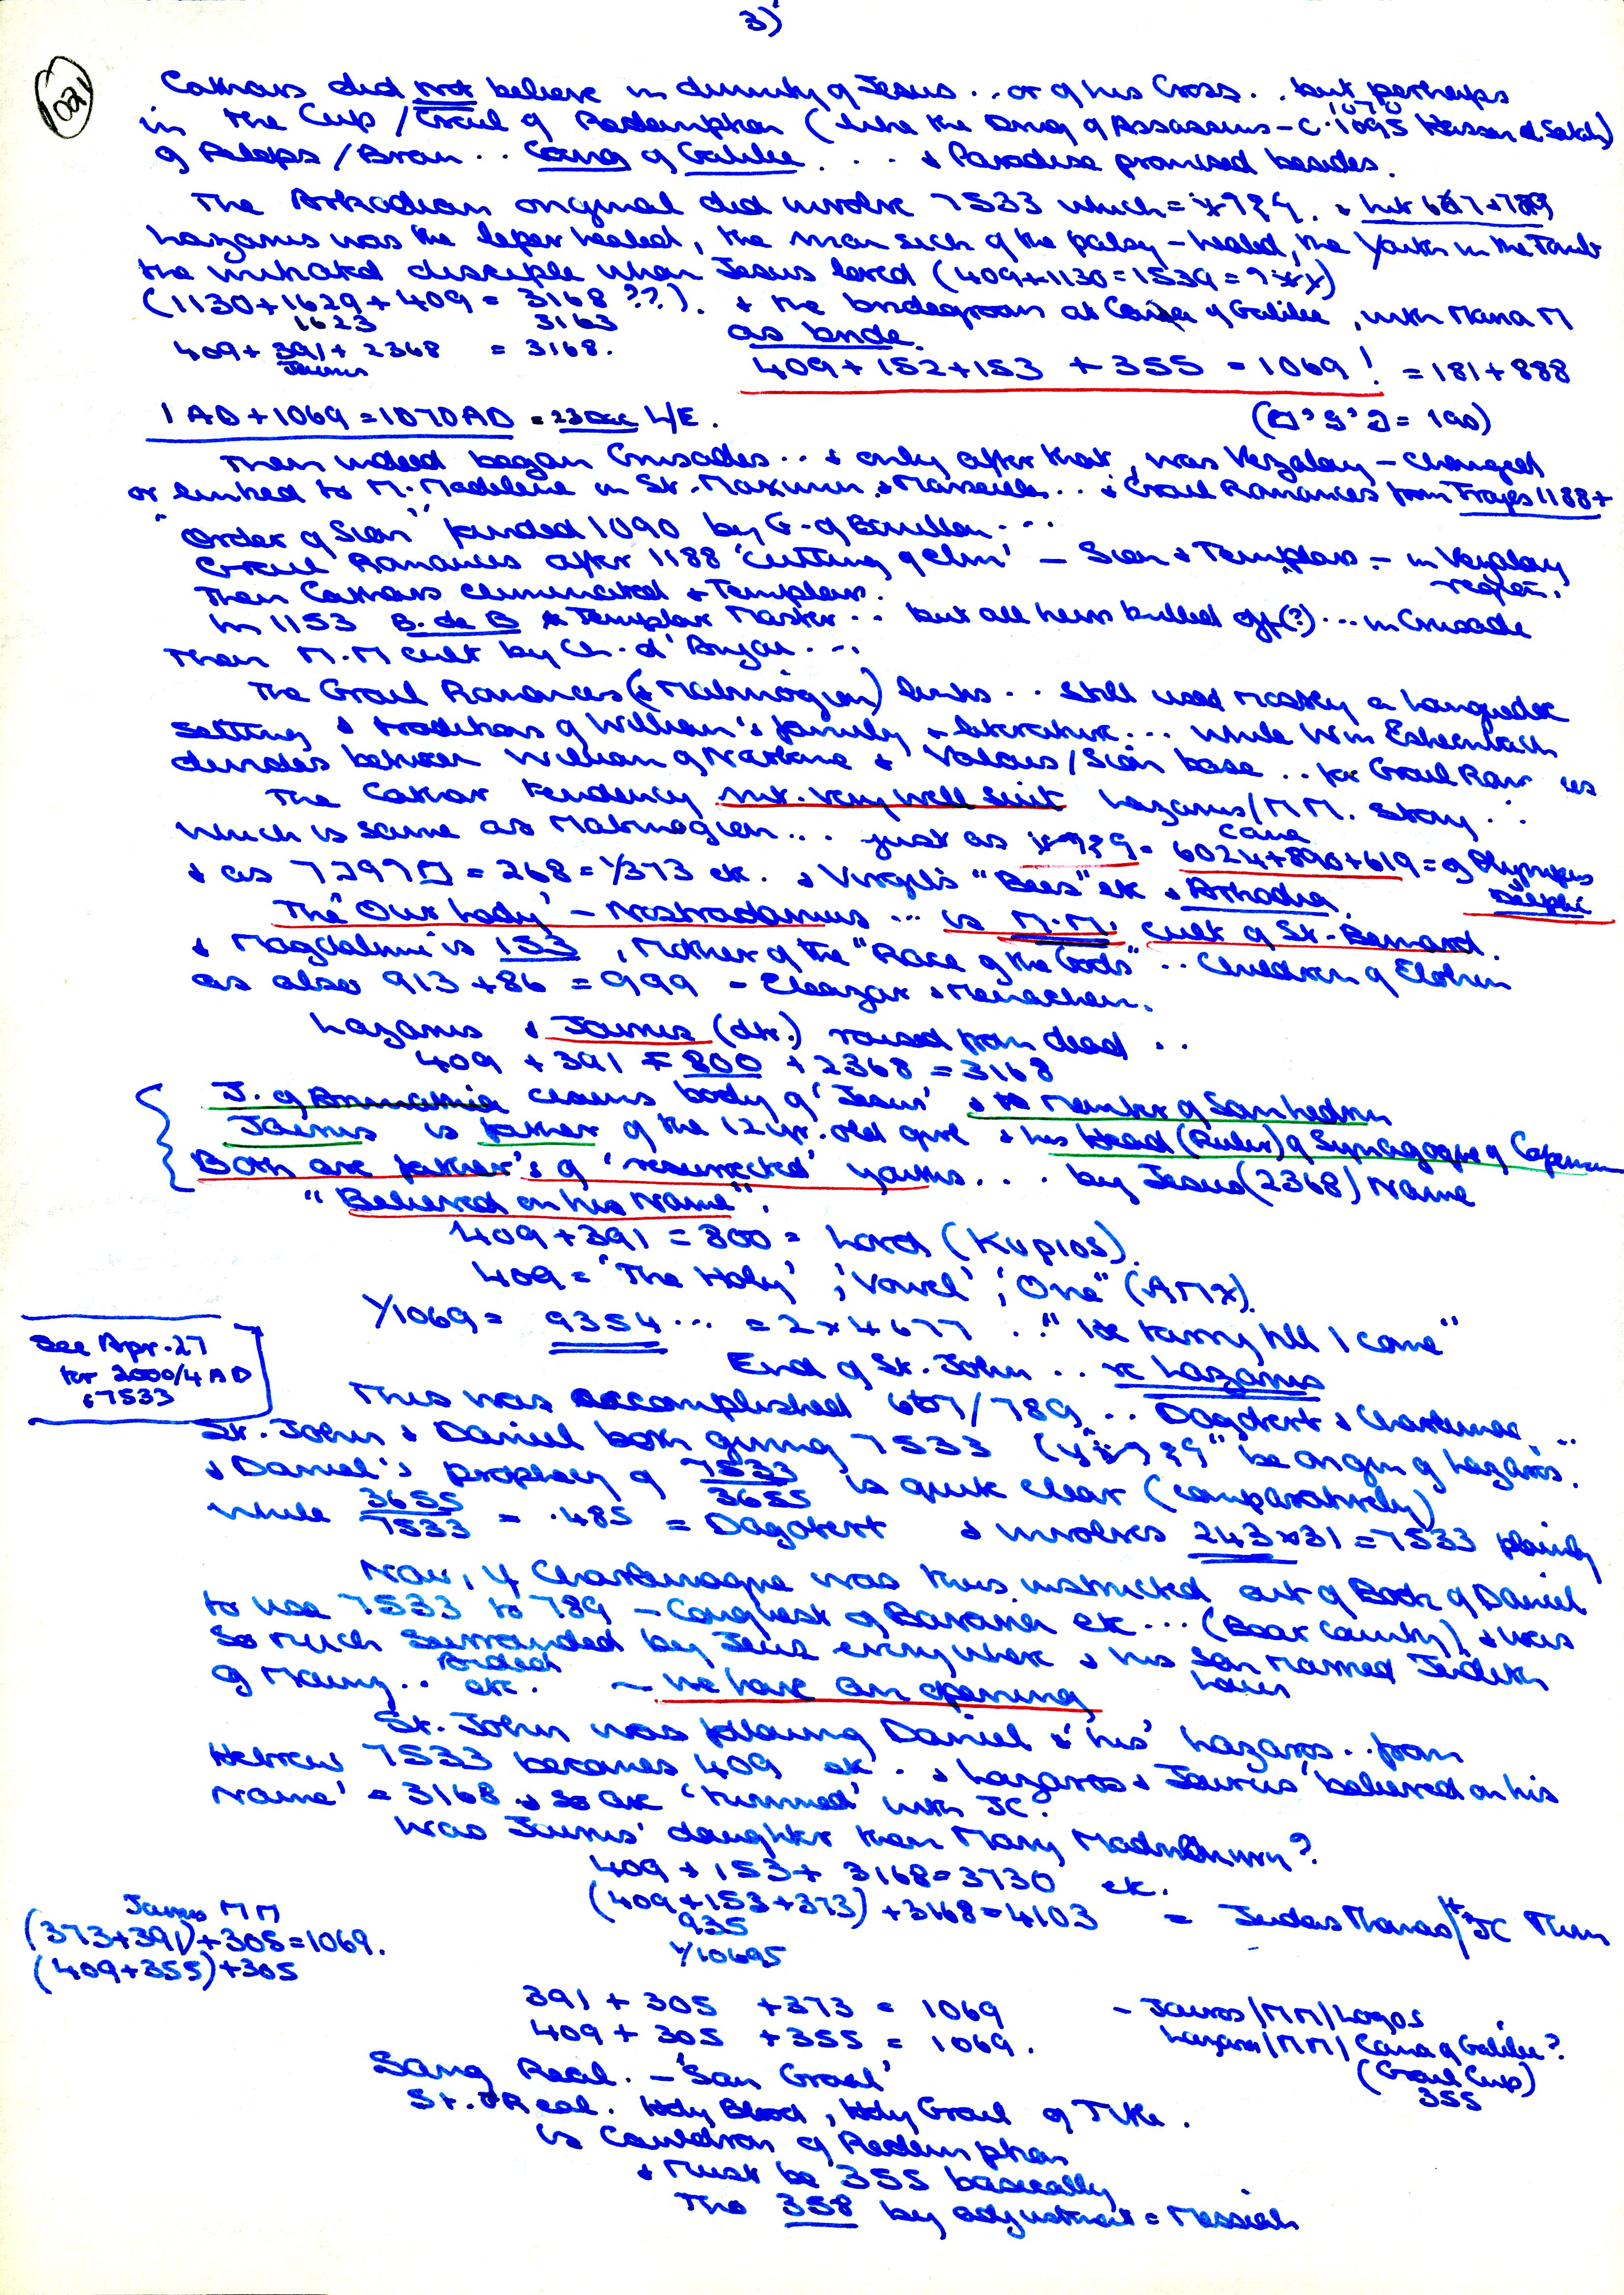 3)
Cathars did not believe in divinity of Jesus .. or of his Cross .. but perhaps
1070
in the Cup / Grail of Redemption (like the Drug of Assassins - C. 1095
of Pelops / Bran .. Cana of Galilee ... + Paradise promised besides.
The Arkadian original did involve 7533 which =
Lazarus was the leper healed, the man sick of the palsy - healed, the Youth in the Tomb
the initiated disciple whom Jesus loved (409+1130=1539=
(1130+1629+409 = 3168 ??). + the bridegroom at Cana of Galilee, with Maria M
1623 3163 as bride.
409+391+2368 = 3168.
Jairus
409+152+153 + 355 = 1069! = 181+888
1 AD + 1069 = 1070 AD = 23 Dec L/E.
Then indeed began Crusades ... + only after that, was Vezalay - changed
or linked to M. Madeleine in St. Maximin + Marseilles ... + Grail Romances from Troyes 1188+
"Order of Sion" founded 1090 by G. of Bouillon ...
Grail Romances after 1188 'Cutting of Elm' - Sion + Templars - in Vezalay
region.
Then Cathars eliminated + Templars.
In 1153 B. de B Templar Master .. but all heirs killed off(?) ... in Crusade
Then M.M cult by Ch. d'Anjou ...
The Grail Romances (+ Mabinogion) links .. still used mostly a Languedoc
setting + traditions of William's family + literature ... while Wm Eshenbach
divides between William of Narbone + Valois / Sion base .. for Grail
The Cathar tendency very well suit Lazarus / M M. story ..
which is same as Mabinogion ... just as
Cana
6024+890+619 = of Olympus
Delphi
+ as = 268 = 1/373 etc. + Virgil's "Bees" etc + Arkadia.
The 'Our Lady' - Nostradamus ... is M.M. cult of St. Bernard.
+ Magdalene is 153, Mother of the "Race of the Gods" .. Children of Elohim
as also 913 + 86 = 999 - Eleazar + Menachem.
Lazarus + Jairus (dtr.) raised from dead ..
409 + 391 = 800 + 2368 = 3168
J. of Arimathia claims body of 'Jesus' + Member of Sanhedrin
Jairus is father of the 12 yr. old girl + his Head (Ruler) of Synagogue of
Both are father's of 'resurrected' youths ... by Jesus (2368) Name
"Believed on his Name".
409 + 391 = 800 = Lord (Kupios).
409 = 'The Holy', 'Vowel', 'One"
1/1069 = 9354 ... = 2 x 4677 .. "He tarry till I come"
End of St. John .. re Lazarus
See Apr. 27
for 2000/4 AD
+ 7533
This was accomplished 607/789 .. Dagobert +
St. John + Daniel both giving 7533 be origin of Lazaros.
+ Daniel's prophecy of 7533/3655 is quite clear (comparatively)
while 3655/7533 = .485 = Dagobert + involves 243 x 31 = 7533 plainly
Now, if Charlamagne was thus instructed out of Book of Daniel
to use 7533 to 789 - Conquest of Bavaria etc ... (Boar County), + was
so much surrounded by Jews everywhere + his Son married Judith
of Many .. etc. - we have an opening
St. John was following Daniel + 'his' Lazaros .. from
Hebrew 7533 becomes 409 etc .. + Lazaros + Jairus 'believed on his
Name' = 3168 + so are 'twinned' with JC.
Was Jairus' daughter then Mary
409 + 153 + 3168 = 3730 etc.
(409+153+373) + 3168 = 4103 = Judas Thomas / JC Twin
935
1/10695
Jairus M M
(373+391)+305=1069.
(409+355)+305
391 + 305 + 373 = 1069 - Jairos / M M / Logos
409 + 305 + 355 = 1069. Lazaros / M M / Cana of Galilee?
(Grail Cup)
355
Sang Real. - 'San Graal'
St. Real. Holy Blood, Holy Grail of
is Cauldron of Redemption
+ must be 355 basically
Tho 358 by adjustment = Messiah